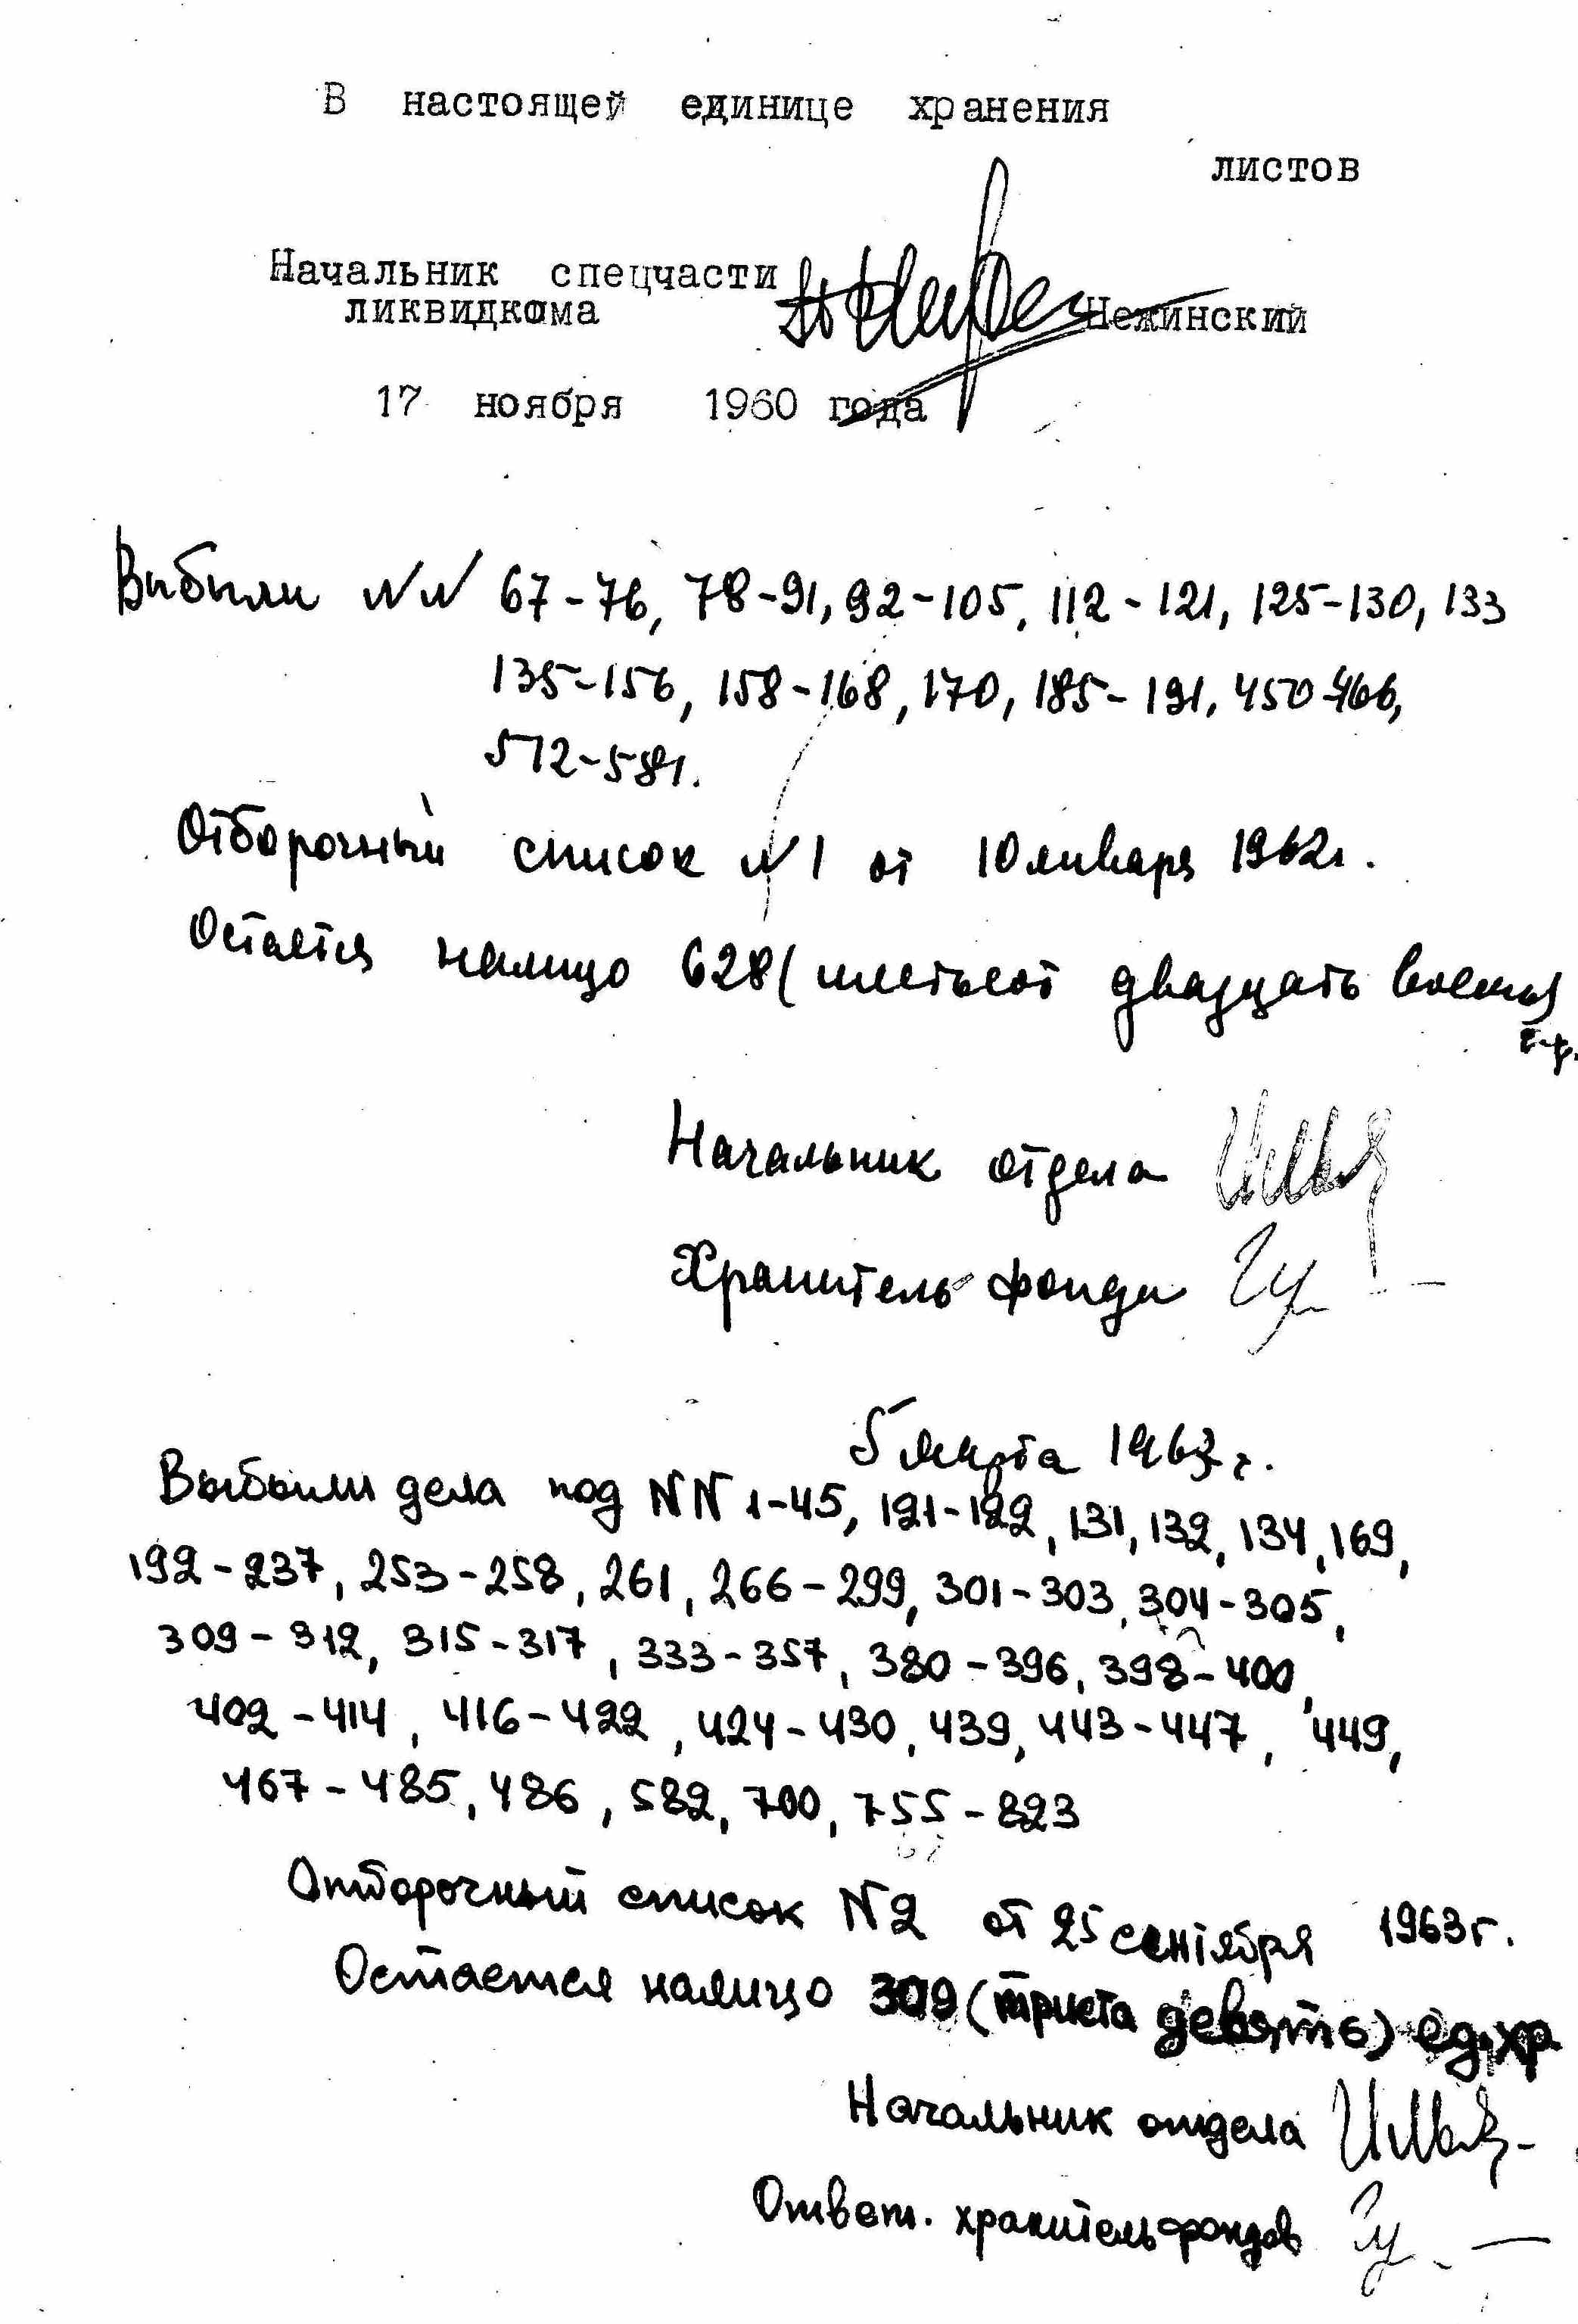 В настоящей единице хранения
листов
Начальник спецчасти
ликвидкома Нежинский
17 ноября 1960 года
Выбыли NN 67-76, 78-91, 92-105, 112-121, 125-130, 133
135-156, 158-168, 170, 185-191, 450-466,
572-581.
Отборочный список N 1 от 10 января 1962г.
Остается налицо 628 (шестьсот двадцать восемь)
е.х.
Начальник отдела
Хранитель фонда
5 марта 1963 г.
Выбыли дела под NN 1-45, 121-122, 131, 132, 134, 169,
192-237, 253-258, 261, 266-299, 301-303, 304-305,
309-312, 315-317, 333-357, 380-396, 398-400,
402-414, 416-422, 424-430, 439, 443-447, 449,
467-485, 486, 582, 700, 755-823
Отборочный список N 2 от 25 сентября 1963г.
Остается налицо 309 (триста девять) ед.хр.
Начальник отдела
Ответ. хранитель фондов